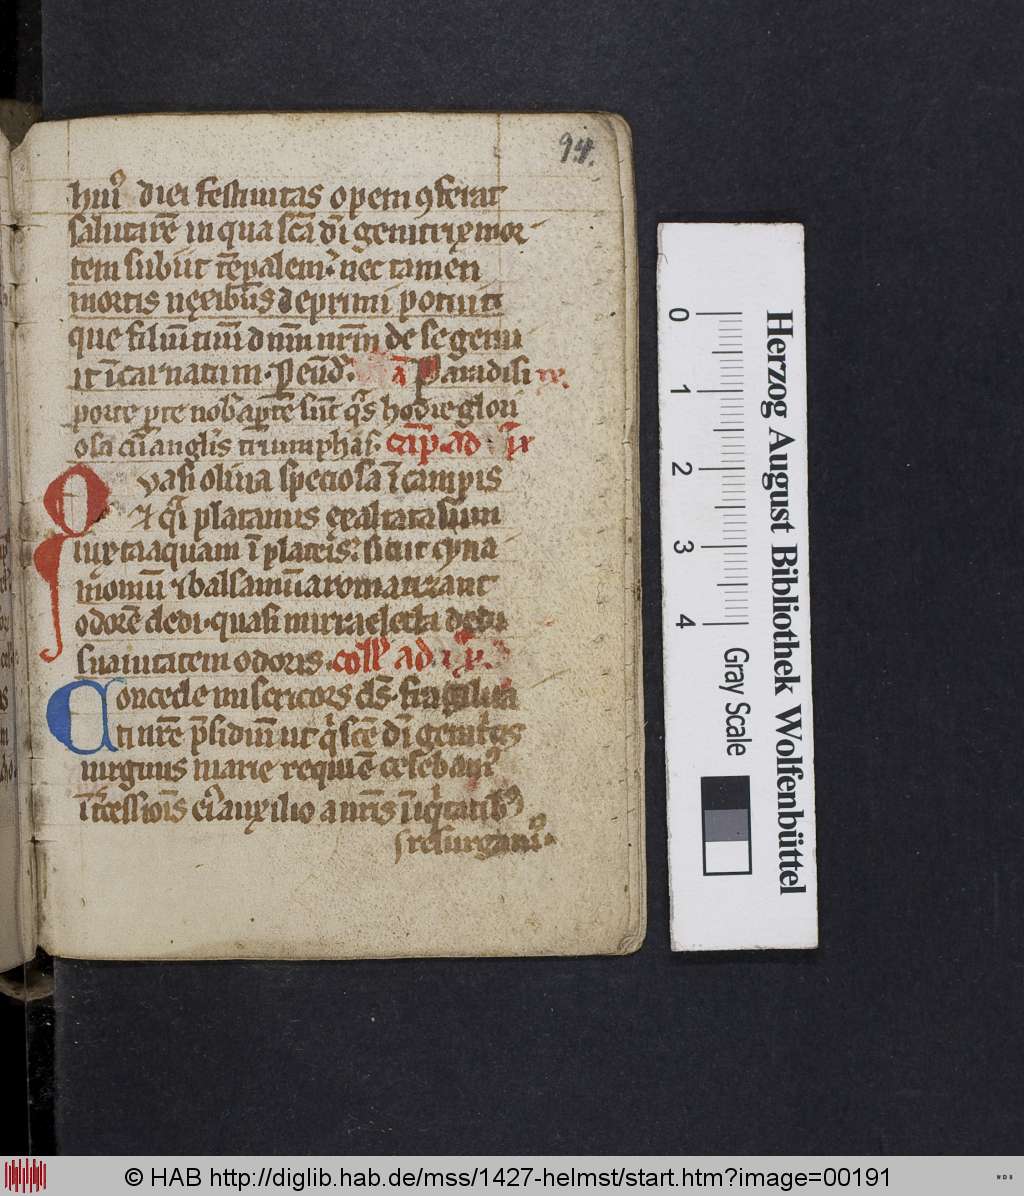 94.
huiꝰ diei festiuitas opem ꝯferat
salutarē in qua scā di genitrix mor
tem subiit tēpalem nec tamen
mortis nexibus deprimi potuit
que filiū tiuū dnm nrm de se genu
it icarnatum. P eund. a Paradisi re.
porte per te nob apte sūt q̄ hodie glori
osa cū anglis triumphas. cap. ad ix
Quasi oliua speciosa ī campis
⁊ qͣi platanus exaltata sum
iuxta aquam ī plateis. sicut cyna
momū ⁊ balsamū aromatizant
odorē dedi. quasi mirra electa dedi
suauitatem odoris. coll ad ix
Concede misericors ds. fragilita
ti nrē psidiū ut q̄ scē di genitcis
uirginis marie requiē celebamꝰ
ītcessiois eiꝰ auxilio a nris īiqͥtatibꝰ
resurgamꝰ.
Herzog August Bibliothek Wolfenbüttel
0 1 2 3 4 Gray Scale
© HAB http://diglib.hab.de/mss/1427-helmst/start.htm?image=00191